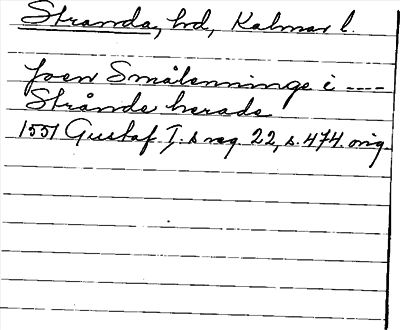 Stranda, hd, Kalmar l.
Joen Smålenninge i ----
Strånde herade
1551 Gustaf I:s reg. 22, s. 474. orig.